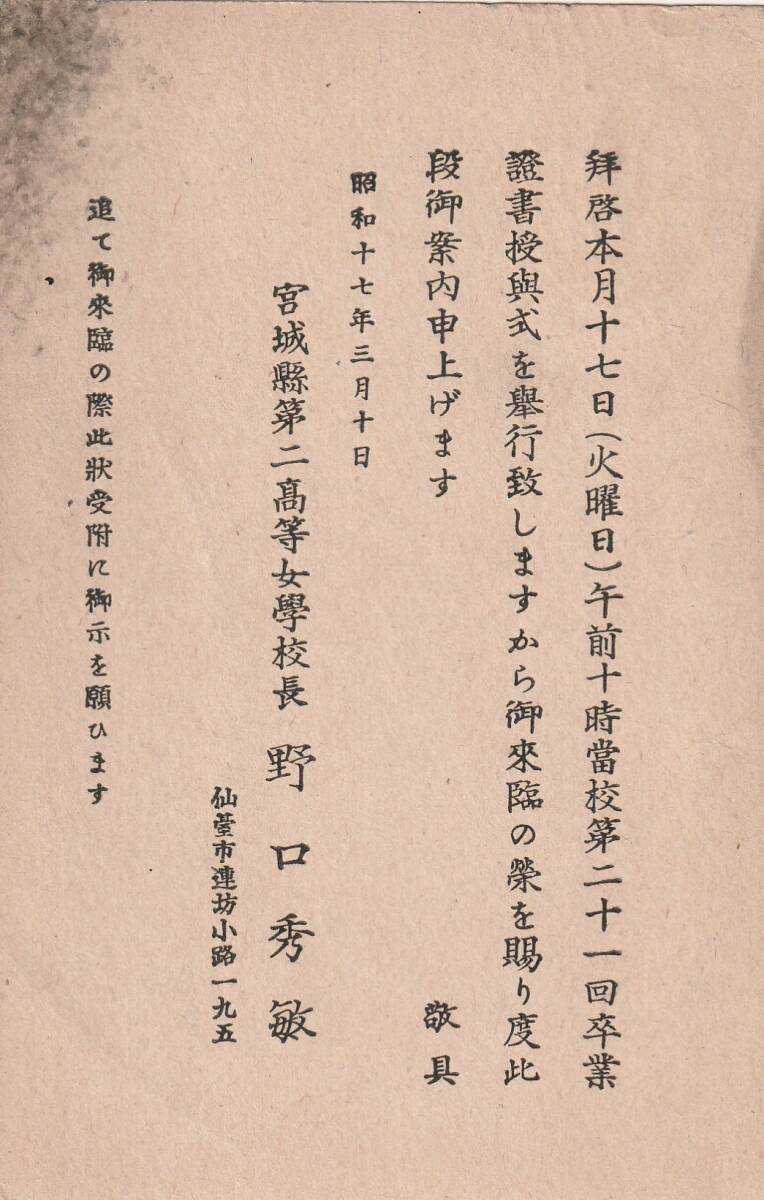 拜啓本月十七日(火曜日)午前十時當校第二十一回卒業
證書授與式を擧行致しますから御來臨の榮を賜り度此
段御案内申上げます 敬具
昭和十七年三月十日
宮城縣第二高等女學校長 野口秀敏
仙臺市連坊小路一九五
追て御來臨の際此狀受附に御示を願ひます